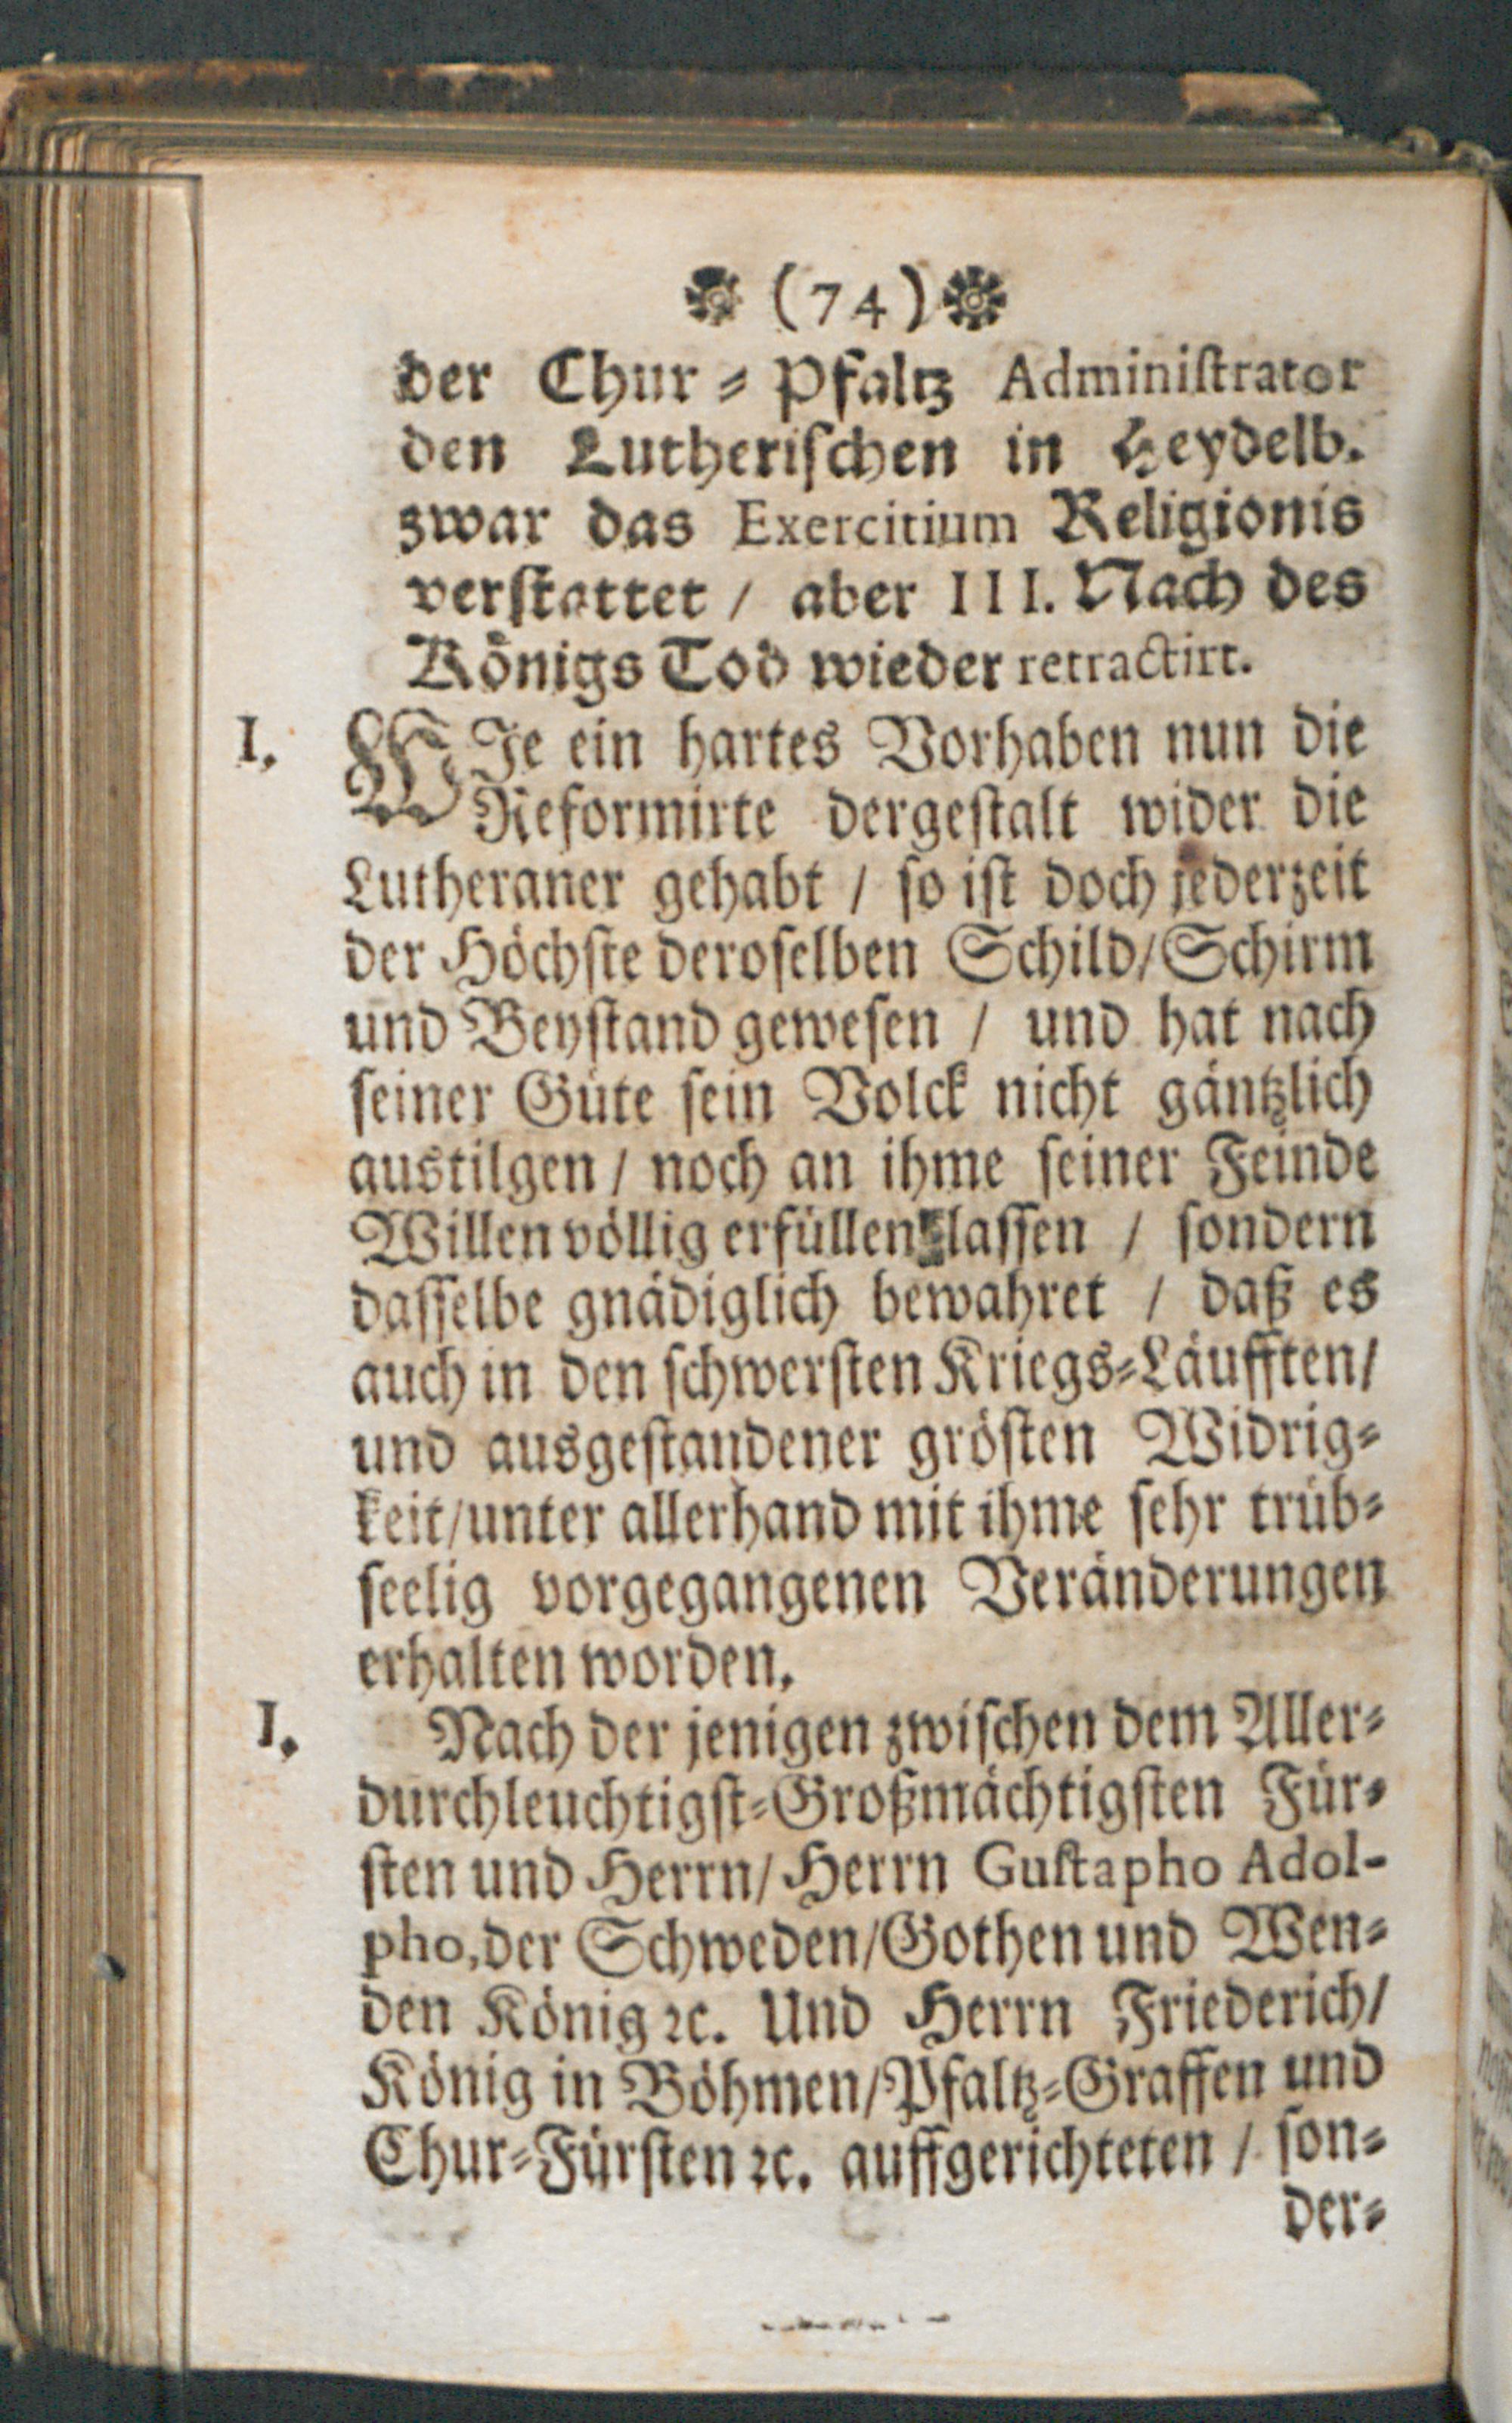 (74)
der Chur-Pfaltz Adminiſtrator
den Lutheriſchen in Heydelb.
zwar das Exercitium Religionis
verſtattet / aber III. Nach des
Königs Tod wieder retractirt.
I. WIe ein hartes Vorhaben nun die
Reformirte dergeſtalt wider die
Lutheraner gehabt / ſo iſt doch jederzeit
der Höchſte deroſelben Schild/Schirm
und Beyſtand geweſen / und hat nach
ſeiner Güte ſein Volck nicht gäntzlich
austilgen / noch an ihme ſeiner Feinde
Willen völlig erfüllen laſſen / ſondern
daſſelbe gnädiglich bewahret / daß es
auch in den ſchwerſten Kriegs-Läufften/
und ausgeſtandener gröſten Widrig-
keit/unter allerhand mit ihme ſehr trüb-
ſeelig vorgegangenen Veränderungen
erhalten worden.
I. Nach der jenigen zwiſchen dem Aller-
durchleuchtigſt-Großmächtigſten Für-
ſten und Herrn/Herrn Guſtapho Adol-
pho,der Schweden/Gothen und Wen-
den König ꝛc. Und Herrn Friederich/
König in Böhmen/Pfaltz-Graffen und
Chur-Fürſten ꝛc. auffgerichteten / ſon-
der-